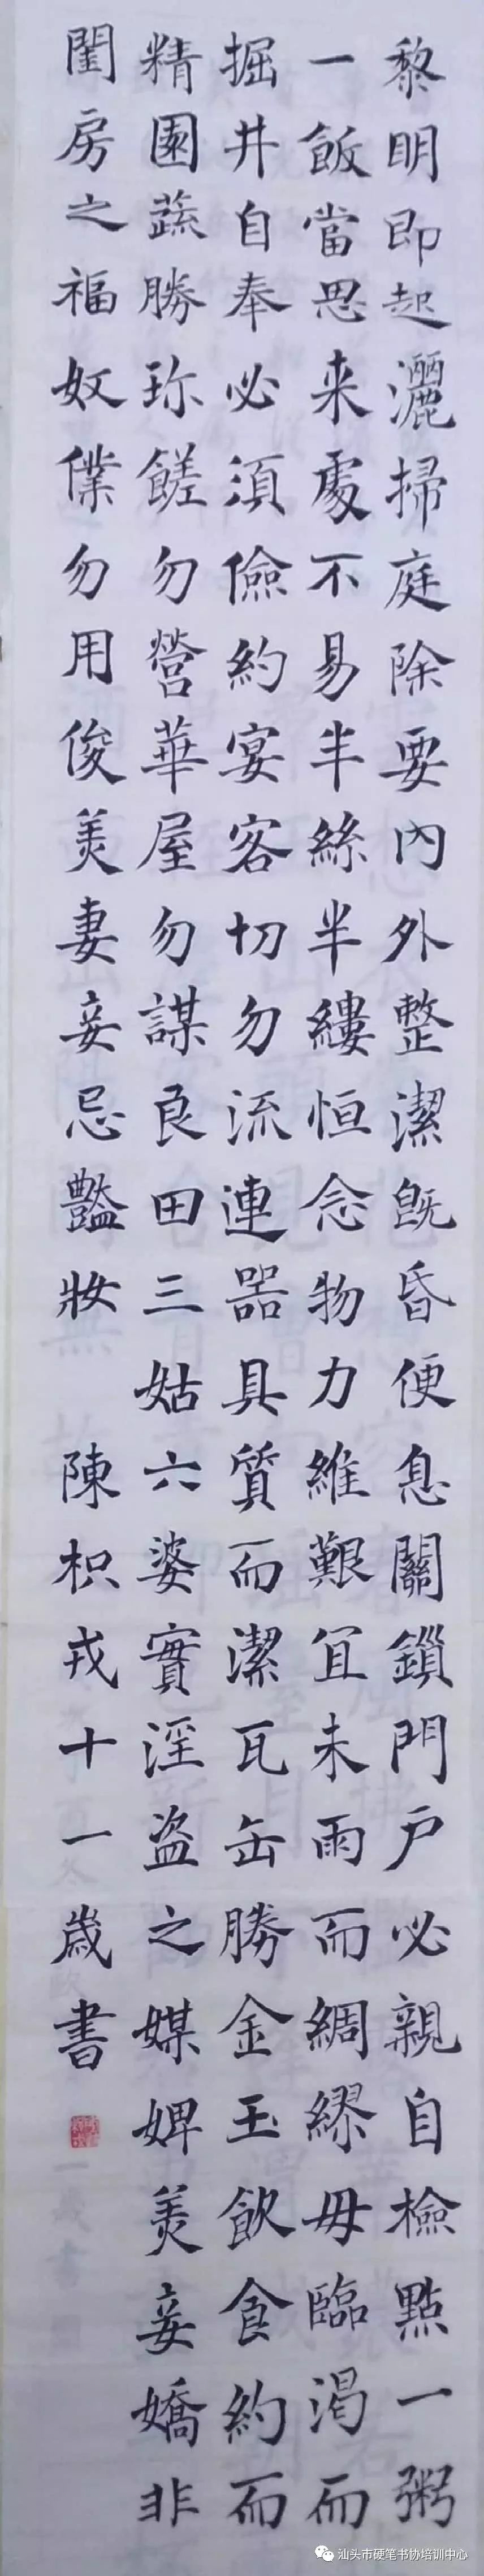 黎明即起灑掃庭除要內外整潔既昏便息關鎖門户必親自檢點一粥
一飯當思来處不易半絲半縷恒念物力維艱宜未雨而綢繆毋臨渴而
掘井自奉必須儉約宴客切勿流連器具質而潔瓦缶勝金玉飲食約而
精園蔬勝珎饈勿營華屋勿謀良田三姑六婆實淫盗之媒婢美妾嬌非
閨房之福奴僕勿用俊美妻妾忌豔妝 陳枳戎十一歲書
汕头市硬笔书协培训中心